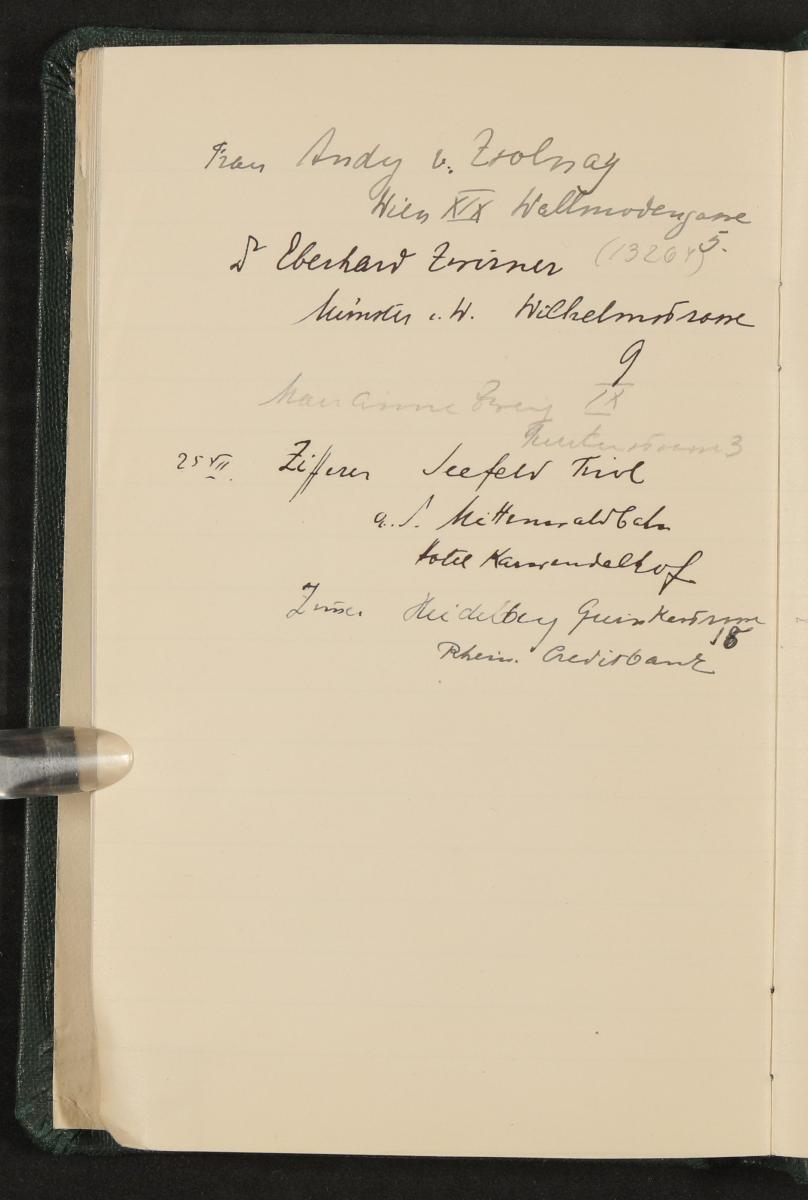 Frau Andy v. Zsolnay
Wien XIX Wallmodengasse
5.
Dr Eberhard Zwirner (13264)
Münster i. W. Wilhelmstrasse
9
Marianne Zweig IX
3
25 VII. Zifferer Seefeld Tirol
a. d. Mittenwaldbahn
Hotel Karwendelhof
Heidelberg
18
Rhein. Creditbank